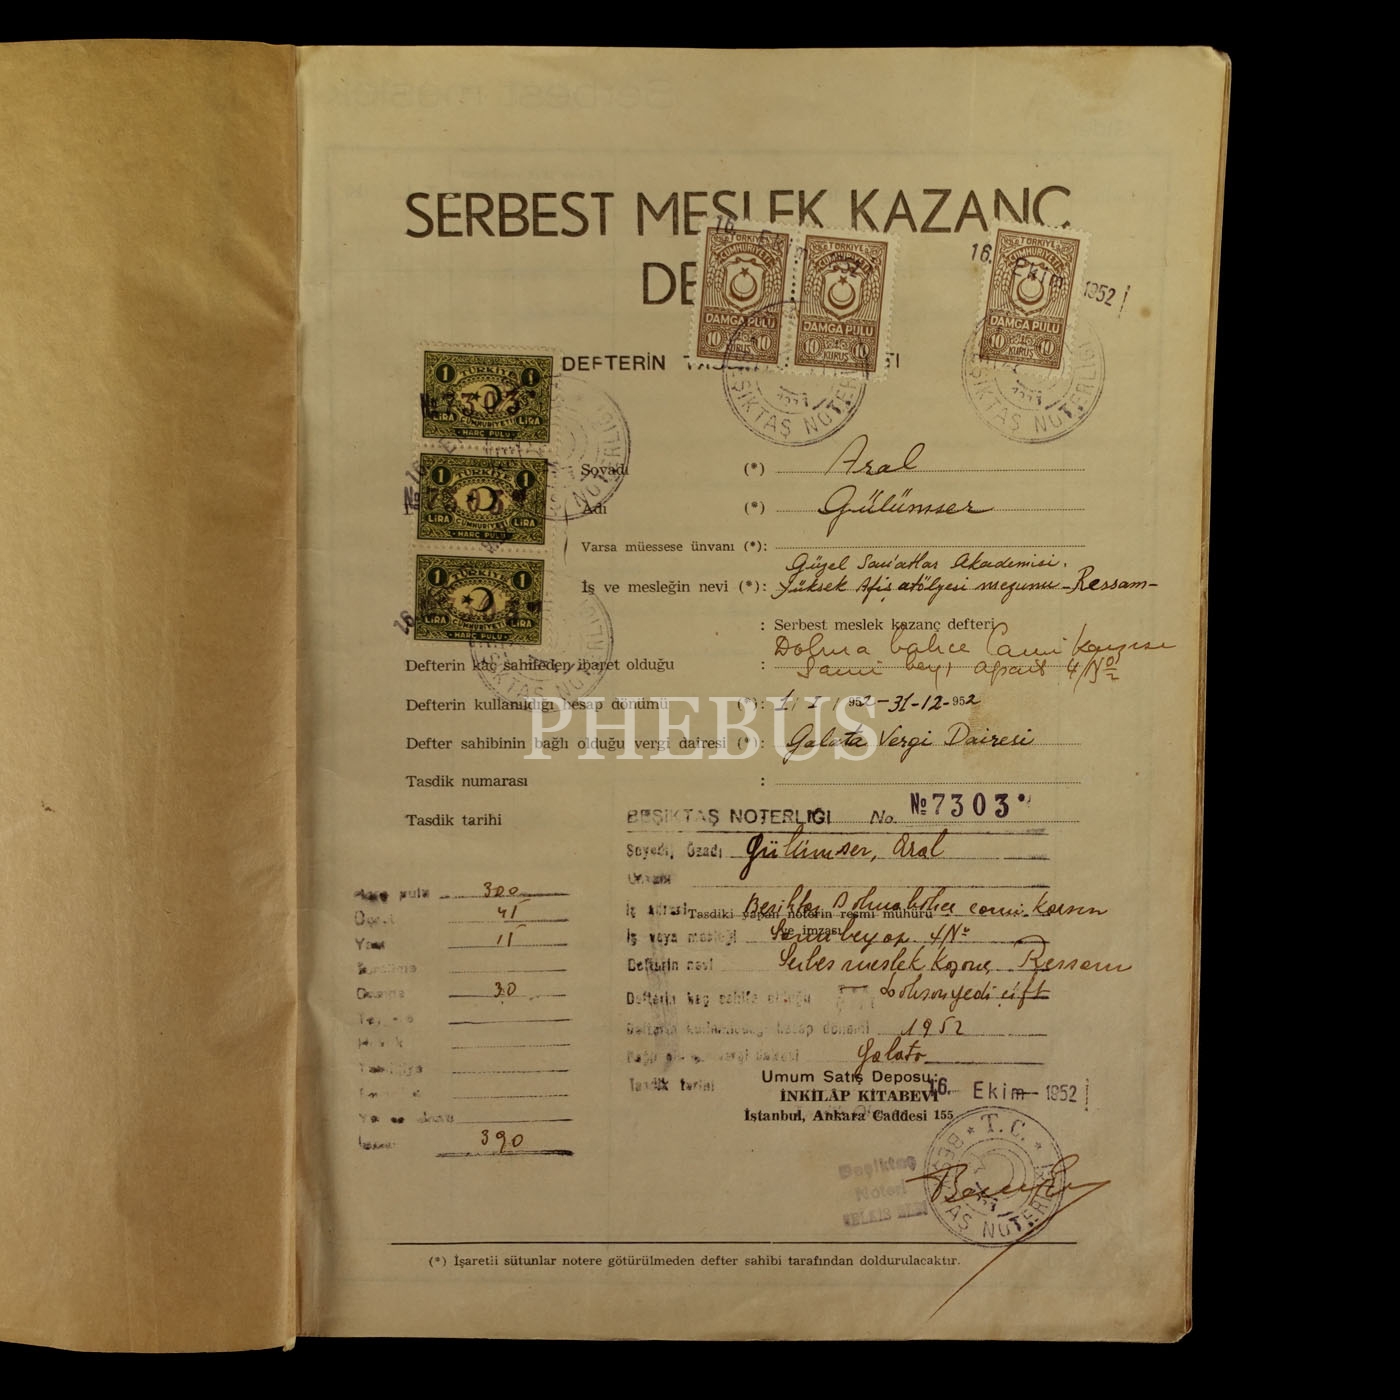 SERBEST MESLEK KAZANÇ
DE
16. Ekim
16. Ekim 1952
TÜRKİYE CUMHURİYETİ DAMGA PULU 10 KURUŞ 10
TÜRKİYE CUMHURİYETİ DAMGA PULU 10 KURUŞ 10
TÜRKİYE CUMHURİYETİ DAMGA PULU 10 KURUŞ 10
DEFTERİN
BEŞİKTAŞ NOTERLİĞİ
BEŞİKTAŞ NOTERLİĞİ
1 TÜRKİYE 1
№ 7303
LİRA CUMHURİYETİ LİRA
HARÇ PULU
1 TÜRKİYE 1
№ 7303
LİRA CUMHURİYETİ LİRA
HARÇ PULU
1 TÜRKİYE 1
LİRA CUMHURİYETİ LİRA
HARÇ PULU
Soyadı (*) Aral
Adı (*) Gülümser
Varsa müessese ünvanı (*):
Güzel San'atlar Akademisi.
İş ve mesleğin nevi (*): Yüksek Afiş atölyesi mezunu - Ressam -
: Serbest meslek kazanç defteri
Dolma bahçe Cami karşısı
Defterin kaç sahifeden ibaret olduğu : Sami bey apart 4/No 2
Defterin kullanıldığı hesap dönümü (*): 1 / I / 952 - 31-12-952
Defter sahibinin bağlı olduğu vergi dairesi (*): Galata Vergi Dairesi
PHEBUS
Tasdik numarası :
Tasdik tarihi
BEŞİKTAŞ NOTERLİĞİ No. № 7303
Soyadı, Özadı Gülümser, Aral
Ünvanı
İş adresi Beşiktaş Dolmabahçe cami karşısı
Tasdiki yapan noterin resmi mühürü
ve imzası
İş veya mesleği Sami bey ap. 4 No
Defterin nevi Serbes meslek kazanç Ressam
Defterin kaç sahife olduğu Doksanyedi çift
Defterin kullanılacağı hesap dönemi 1952
Galata
Tasdik tarihi 16. Ekim 1952
Harç pulu 300
30
390
Umum Satış Deposu:
İNKİLÂP KİTABEVİ
İstanbul, Ankara Caddesi 155
T. C. BEŞİKTAŞ NOTERLİĞİ
Beşiktaş
Noteri
(*) İşaretli sütunlar notere götürülmeden defter sahibi tarafından doldurulacaktır.